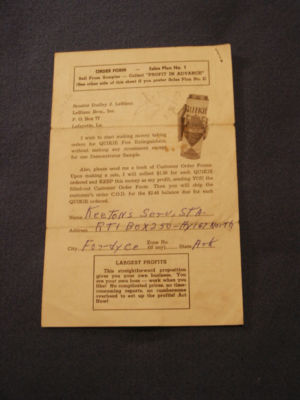 ORDER FORM — Sales Plan No. 1
Sell From Samples — Collect "PROFIT IN ADVANCE"
(See other side of this sheet if you prefer Sales Plan No. 2)
Senator Dudley J. LeBlanc
LeBlanc Bros., Inc.
P. O. Box 77
Lafayette, La.
I wish to start making money taking
orders for QUIKIE Fire Extinguishers,
without making any investment except
for one Demonstrator Sample.
Also, please send me a book of Customer Order Forms.
Upon making a sale, I will collect $1.50 for each QUIKIE
ordered and KEEP this money as my profit, sending YOU the
filled-out Customer Order Form. Then you will ship the
customer's order C.O.D. for the $2.45 balance due for each
QUIKIE ordered.
Name Keetons Serv. STA.
Address RT 1 BOX 250 - Hy 167 North
City Fordyce Zone No. (if any) State Ark
LARGEST PROFITS
This straightforward proposition
gives you your own business. You
are your own boss — work when you
like! No complicated prices, no time-
consuming reports, no cumbersome
overhead to set up the profits! Act
Now!